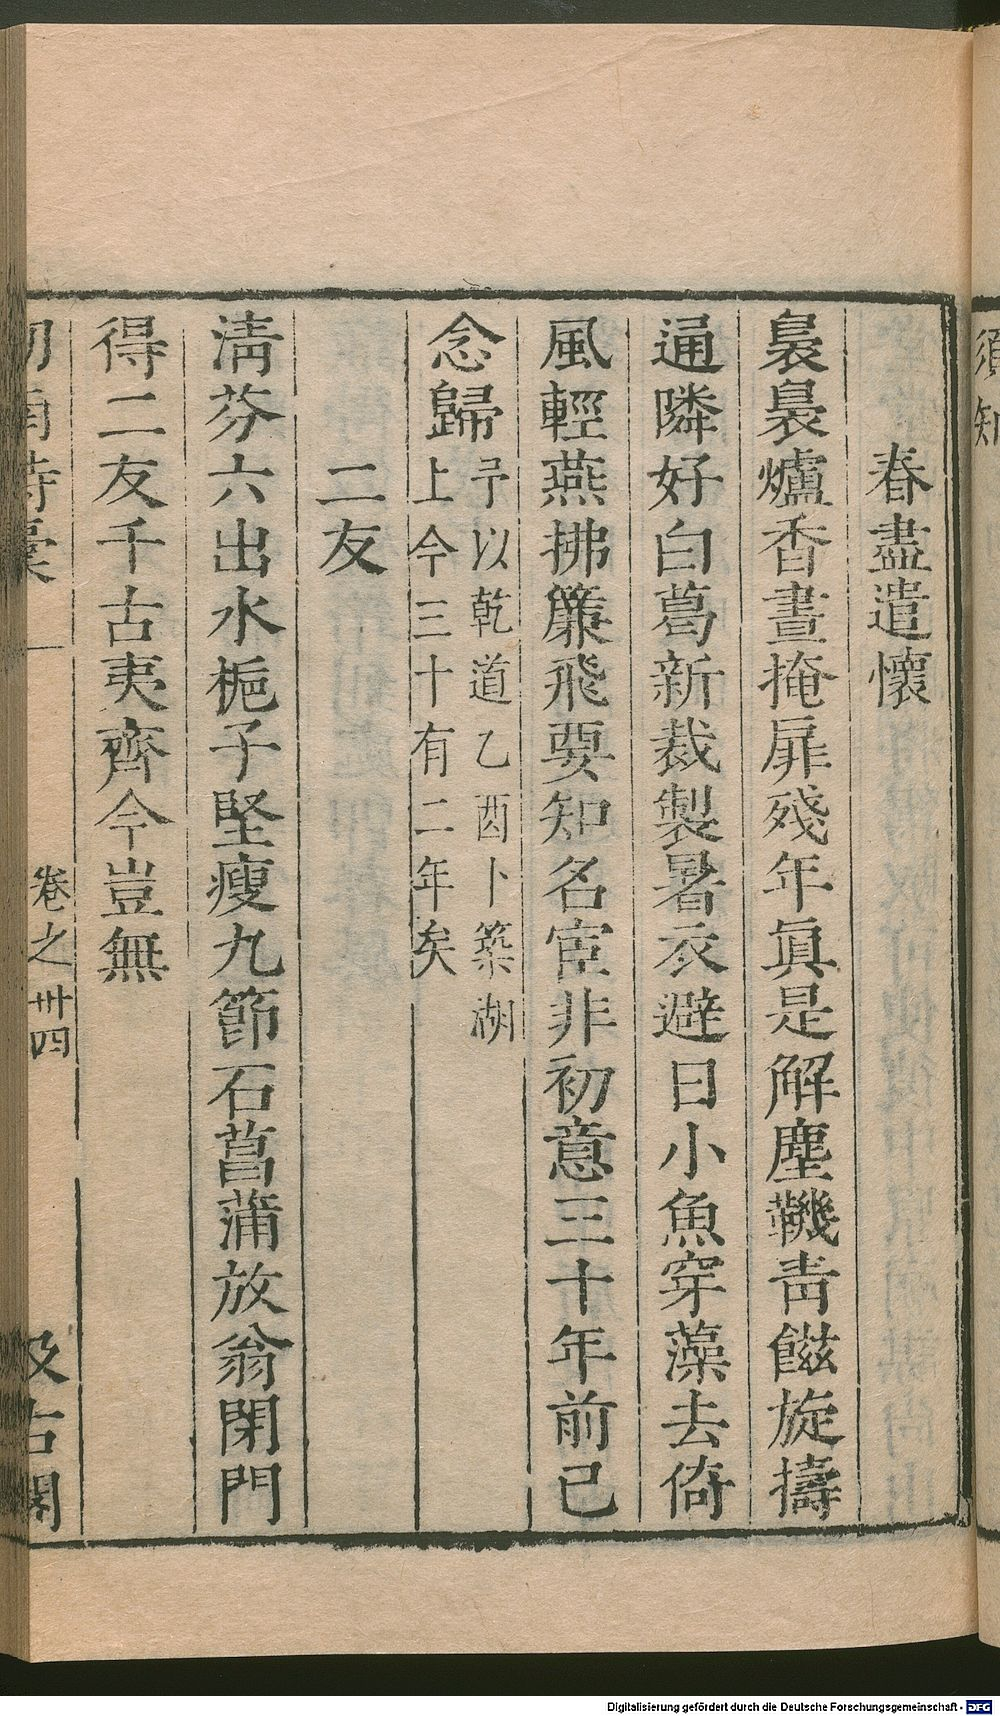 須知
春盡遣懷
裊裊爐香晝掩扉殘年眞是解塵鞿靑餻旋擣
通隣好白葛新裁製暑衣避日小魚穿藻去倚
風輕燕拂簾飛要知名宦非初意三十年前已
念歸
予以乾道乙酉卜築湖
上今三十有二年矣
二友
淸芬六出水梔子堅瘦九節石菖蒲放翁閉門
得二友千古夷齊今豈無
卷之卅四
Digitalisierung gefördert durch die Deutsche Forschungsgemeinschaft - DFG